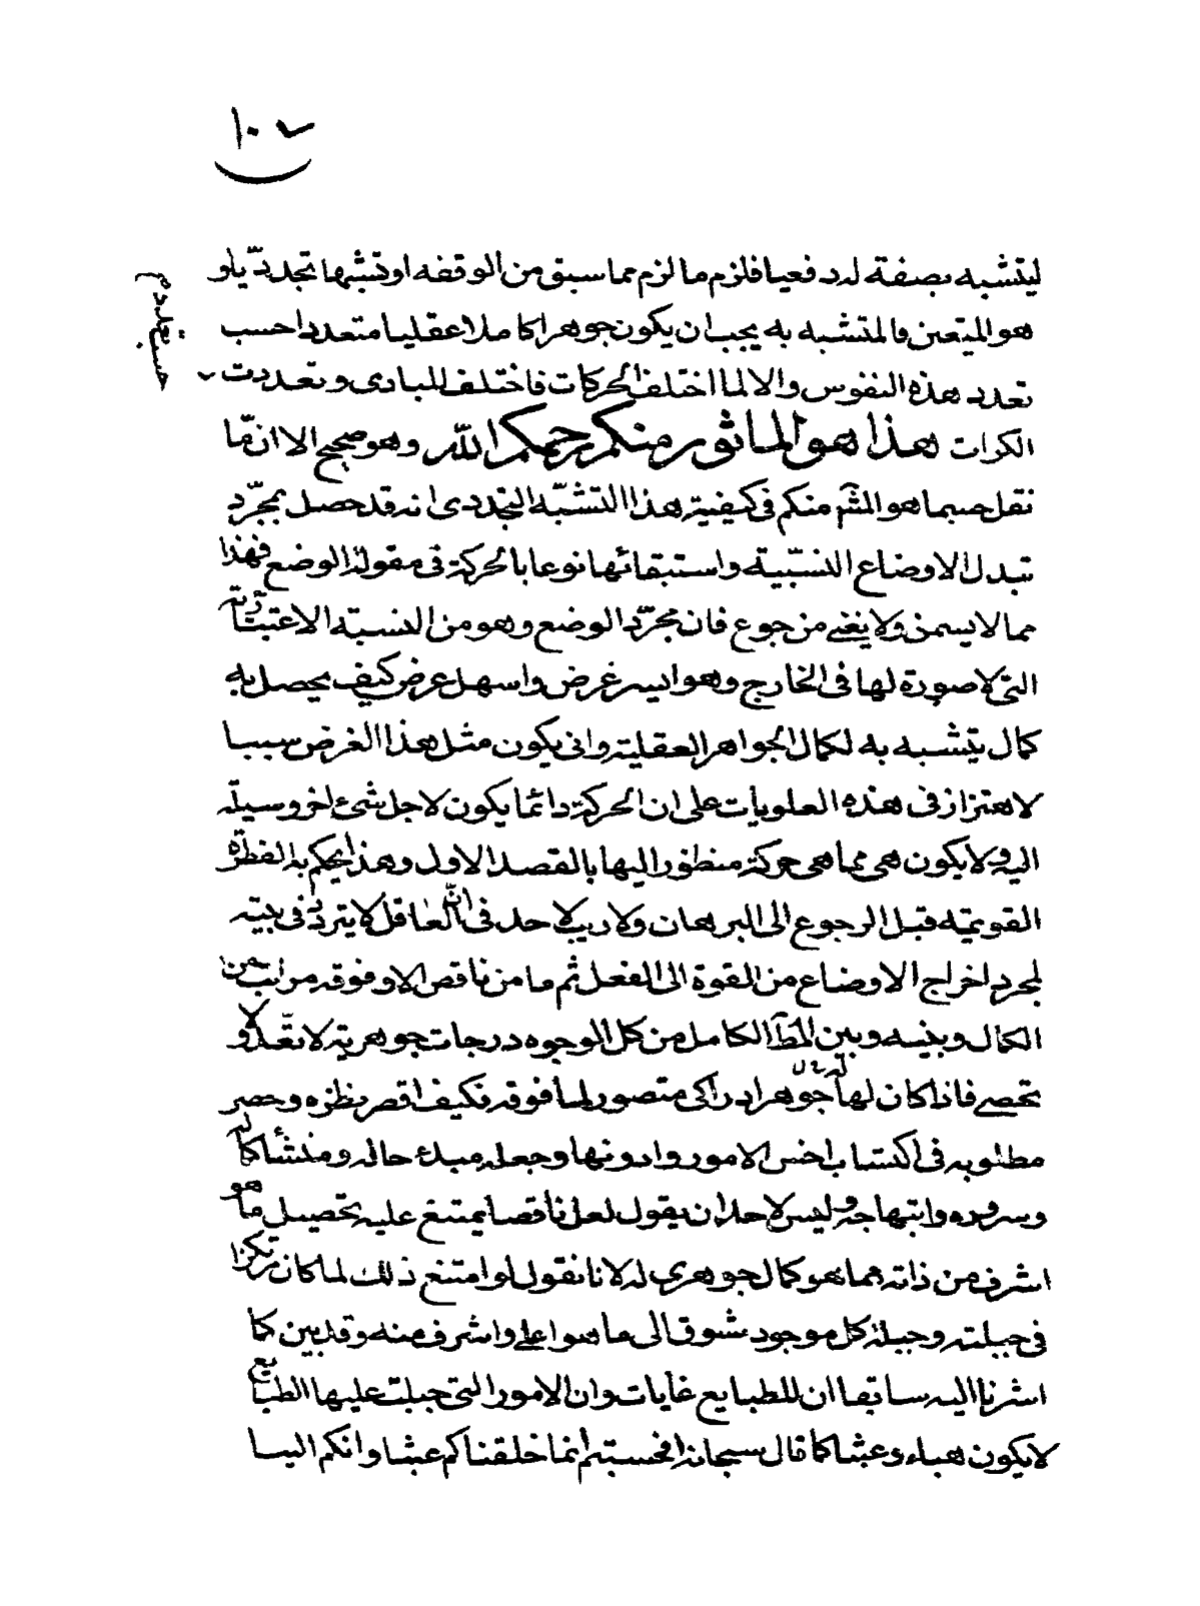 ١٠٧
ليتشبه بصفة له دفعيا فلزم ما لزم مما سبق من الوقفه او تشبها تجدديّا و
هو المتعين فالمتشبه به يجب ان يكون جوهرا كاملا عقليا متعددا حسب
تعدد هذه النفوس والا لما اختلف الحركات فاختلف المبادى وتعددت
الكرات هذا هو الماثور منكم رحمكم الله وهو صحيح الا ان ما
نقل حسبما هو المش منكم فى كيفية هذا التشبّه التجددى انه قد حصل بمجرّد
تبدل الاوضاع النسبّية واستبقائها نوعا بالحركة فى مقولة الوضع فهذا
مما لا يسمن ولا يغنى من جوع فان مجرّد الوضع وهو من النسبة الاعتبارية
التى لا صورة لها فى الخارج وهو ايسر غرض واسهل عرض كيف يحصل به
كمال يتشبه به لكمال الجواهر العقلية وانى يكون مثل هذا الغرض سببا
لاهتزاز فى هذه العلويات على ان الحركة دائما يكون لاجل شئ اخر وسيلة
اليه ولا يكون هى مما هى حركة منظورا اليها بالقصد الاول وهذا يحكم به الفطرة
القويمة قبل الرجوع الى البرهان ولا ريب لاحد فى ان العاقل لا يتردد فى بيته
لمجرد اخراج الاوضاع من القوة الى الفعل ثم ما من ناقص الا وفوقه مراتب من
الكمال وبينه وبين المط الكامل من كل الوجوه درجات جوهرية لا تعّد ولا
تحصى فاذا كان لها جوهر ادراكى متصور لما فوقه فكيف اقصر نظره وحصر
مطلوبه فى اكتساب اخس الامور وادونها وجعله مبدء حاله ومنشأ كماله
وسروره وابتهاجه وليس لاحد ان يقول لعل ناقصا يمتنع عليه تحصيل ما هو
اشرف من ذاته مما هو كمال جوهرى له لانا نقول لو امتنع ذلك لما كان مرتكزا
فى جبلته وجبلة كل موجود شوق الى ما هو اعلى واشرف منه وقد بين كما
اشرنا اليه سابقا ان للطبايع غايات وان الامور التى جبلت عليها الطبايع
لا يكون هباء وعبثا كما قال سبحانه افحسبتم انما خلقناكم عبثا وانكم الينا
حسب تعدد